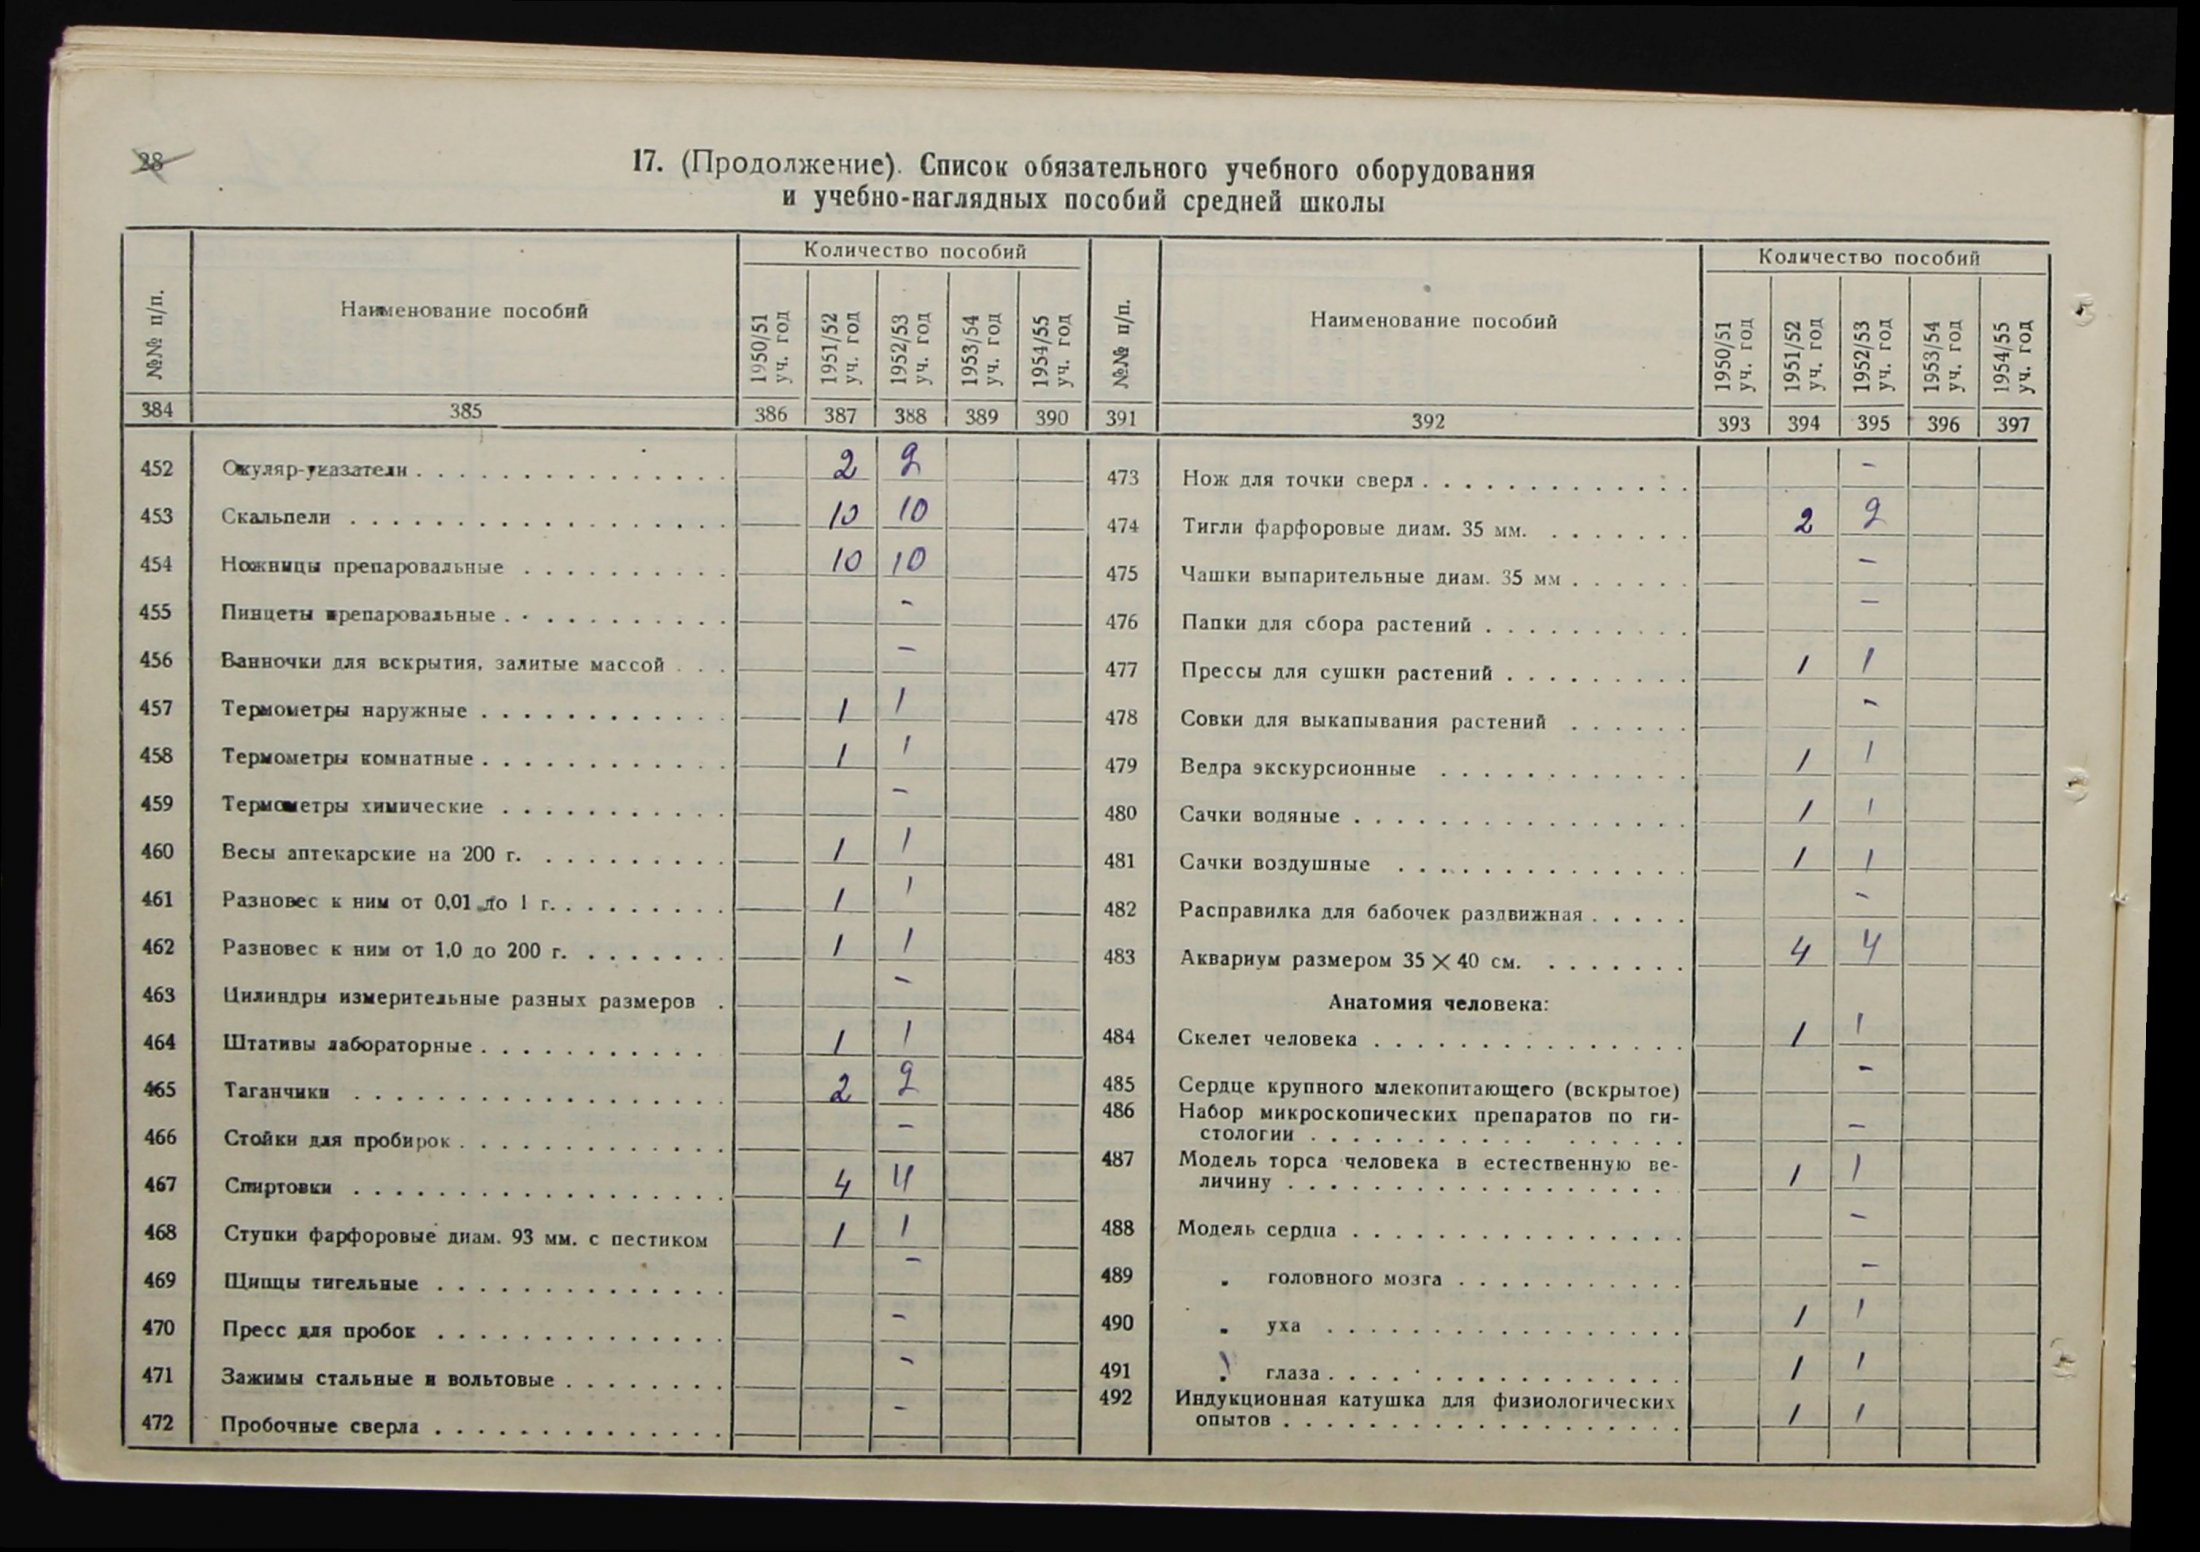 28
17. (Продолжение). Список обязательного учебного оборудования
и учебно-наглядных пособий средней школы
№№ п/п. Наименование пособий Количество пособий №№ п/п. Наименование пособий Количество пособий
1950/51 уч. год 1951/52 уч. год 1952/53 уч. год 1953/54 уч. год 1954/55 уч. год 1950/51 уч. год 1951/52 уч. год 1952/53 уч. год 1953/54 уч. год 1954/55 уч. год
384 385 386 387 388 389 390 391 392 393 394 395 396 397
452 Окуляр-указатели 2 2
453 Скальпели 10 10
454 Ножницы препаровальные 10 10
455 Пинцеты препаровальные -
456 Ванночки для вскрытия, залитые массой -
457 Термометры наружные 1 1
458 Термометры комнатные 1 1
459 Термометры химические -
460 Весы аптекарские на 200 г. 1 1
461 Разновес к ним от 0,01 до 1 г. 1 1
462 Разновес к ним от 1,0 до 200 г. 1 1
463 Цилиндры измерительные разных размеров -
464 Штативы лабораторные 1 1
465 Таганчики 2 2
466 Стойки для пробирок -
467 Спиртовки 4 4
468 Ступки фарфоровые диам. 93 мм. с пестиком 1 1
469 Щипцы тигельные -
470 Пресс для пробок -
471 Зажимы стальные и вольтовые -
472 Пробочные сверла -
473 Нож для точки сверл -
474 Тигли фарфоровые диам. 35 мм. 2 2
475 Чашки выпарительные диам. 35 мм -
476 Папки для сбора растений -
477 Прессы для сушки растений 1 1
478 Совки для выкапывания растений -
479 Ведра экскурсионные 1 1
480 Сачки водяные 1 1
481 Сачки воздушные 1 1
482 Расправилка для бабочек раздвижная -
483 Аквариум размером 35 × 40 см. 4 4
Анатомия человека:
484 Скелет человека 1 1
485 Сердце крупного млекопитающего (вскрытое) -
486 Набор микроскопических препаратов по ги-
стологии -
487 Модель торса человека в естественную ве-
личину 1 1
488 Модель сердца -
489 „ головного мозга -
490 „ уха 1 1
491 „ глаза 1 1
492 Индукционная катушка для физиологических
опытов 1 1